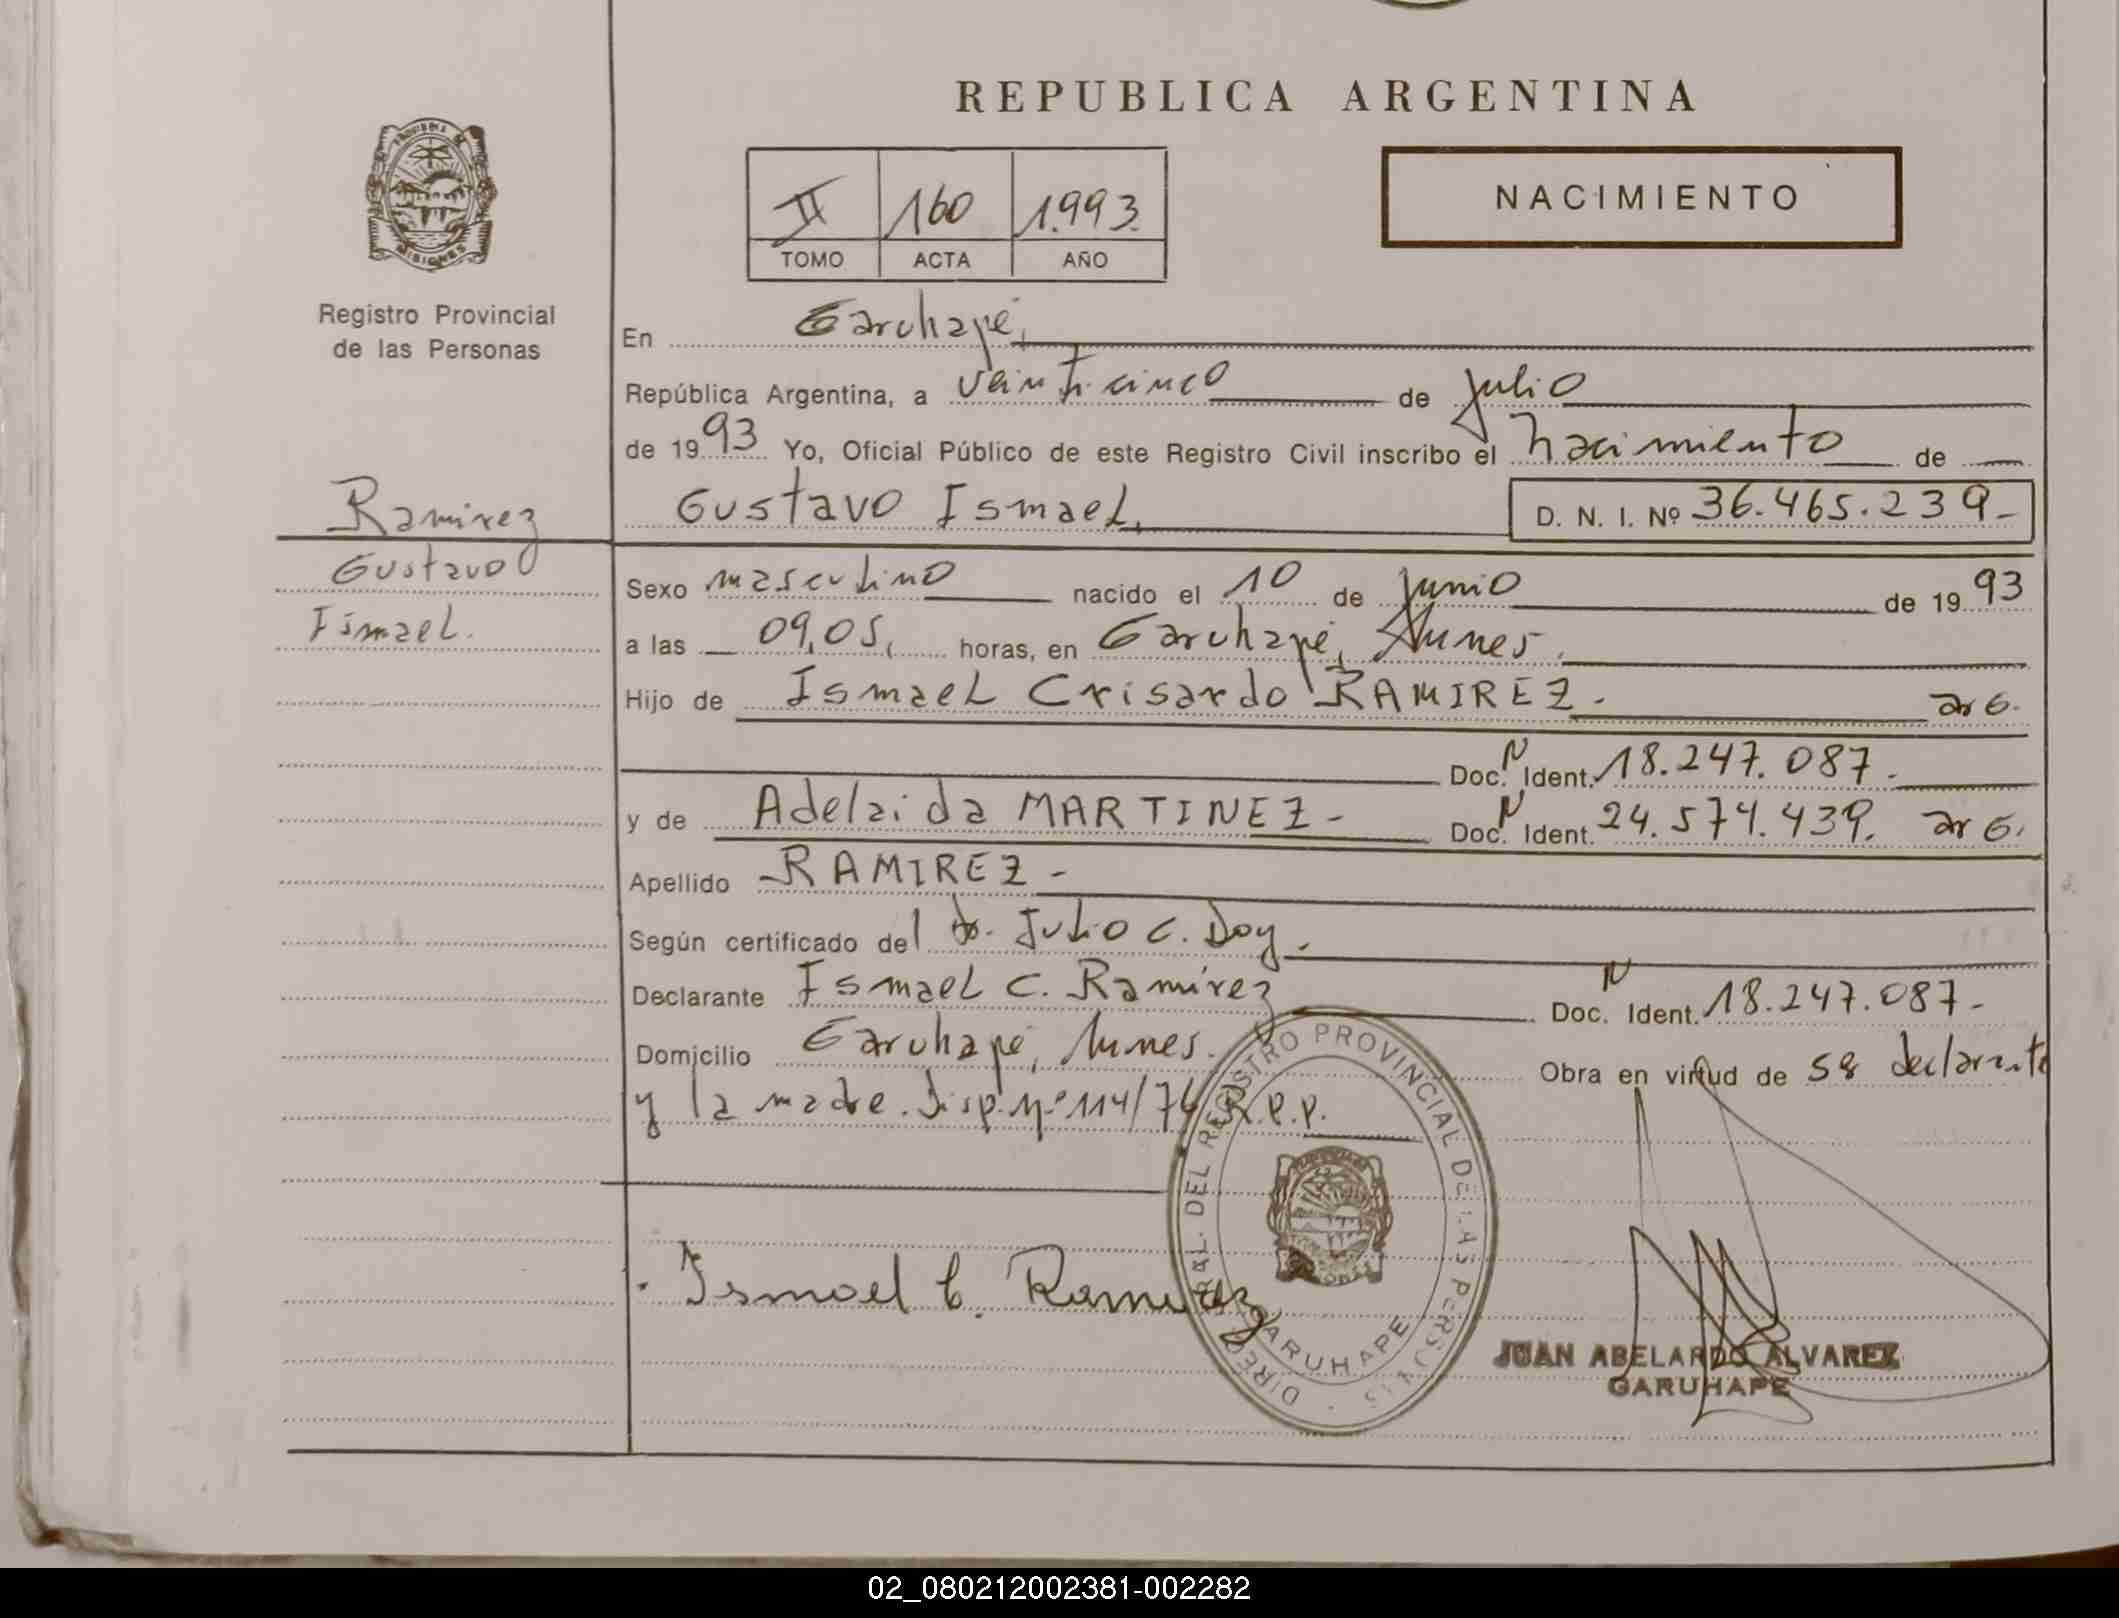 REPUBLICA ARGENTINA
PROVINCIA DE
MISIONES
NACIMIENTO
II 160 1.993.
TOMO ACTA AÑO
Registro Provincial
de las Personas
En Garuhapé,
República Argentina, a veinticinco de julio
de 1993 Yo, Oficial Público de este Registro Civil inscribo el nacimiento de
Gustavo Ismael, D. N. I. Nº 36.465.239-
Ramirez
Gustavo
Ismael.
Sexo masculino nacido el 10 de junio de 1993
a las 09,05, horas, en Garuhapé, Mnes.
Hijo de Ismael Crisardo RAMIREZ- arg.
Doc. N Ident. 18.247.087.-
y de Adelaida MARTINEZ- Doc. N Ident. 24.574.439. arg.
Apellido RAMIREZ-
Según certificado del dr. Julio C. Doy.
Declarante Ismael C. Ramírez Doc. N Ident. 18.247.087-
Domicilio Garuhapé, Mnes. Obra en virtud de ser declarante
y la madre. Disp. Nº 114/76 R.P.P.
Ismael C. Ramirez
DIREC. GRAL. DEL REGISTRO PROVINCIAL DE LAS PERSONAS
GARUHAPE
JUAN ABELARDO ALVAREZ
GARUHAPE
02_080212002381-002282